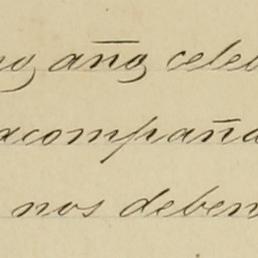 año, cele
acompaña
nos deben